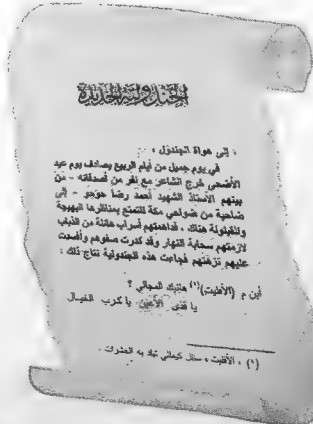 الجندولية الجديدة
، إلى هواة الجندول ،
في يوم جميل من أيام الربيع يصادف يوم عيد
الأضحى خرج الشاعر مع نفر من أصدقائه - من
بينهم الأستاذ الشهيد أحمد رضا حوحو - إلى
ضاحية من ضواحي مكة للتمتع بمناظرها البهيجة
هناك ، فداهمتهم أسراب هائلة من الذباب
لازمتهم سحابة النهار وقد كدرت صفوهم وأفسدت
عليهم نزهتهم فجاءت هذه الجندولية نتاج ذلك :
أين م (الأفليت)(١) هاتيك المجالي ؟
يا قذى الأعين يا كرب الخيال
(١) ، الأفليت ، سائل كيمائي تباد به الحشرات .